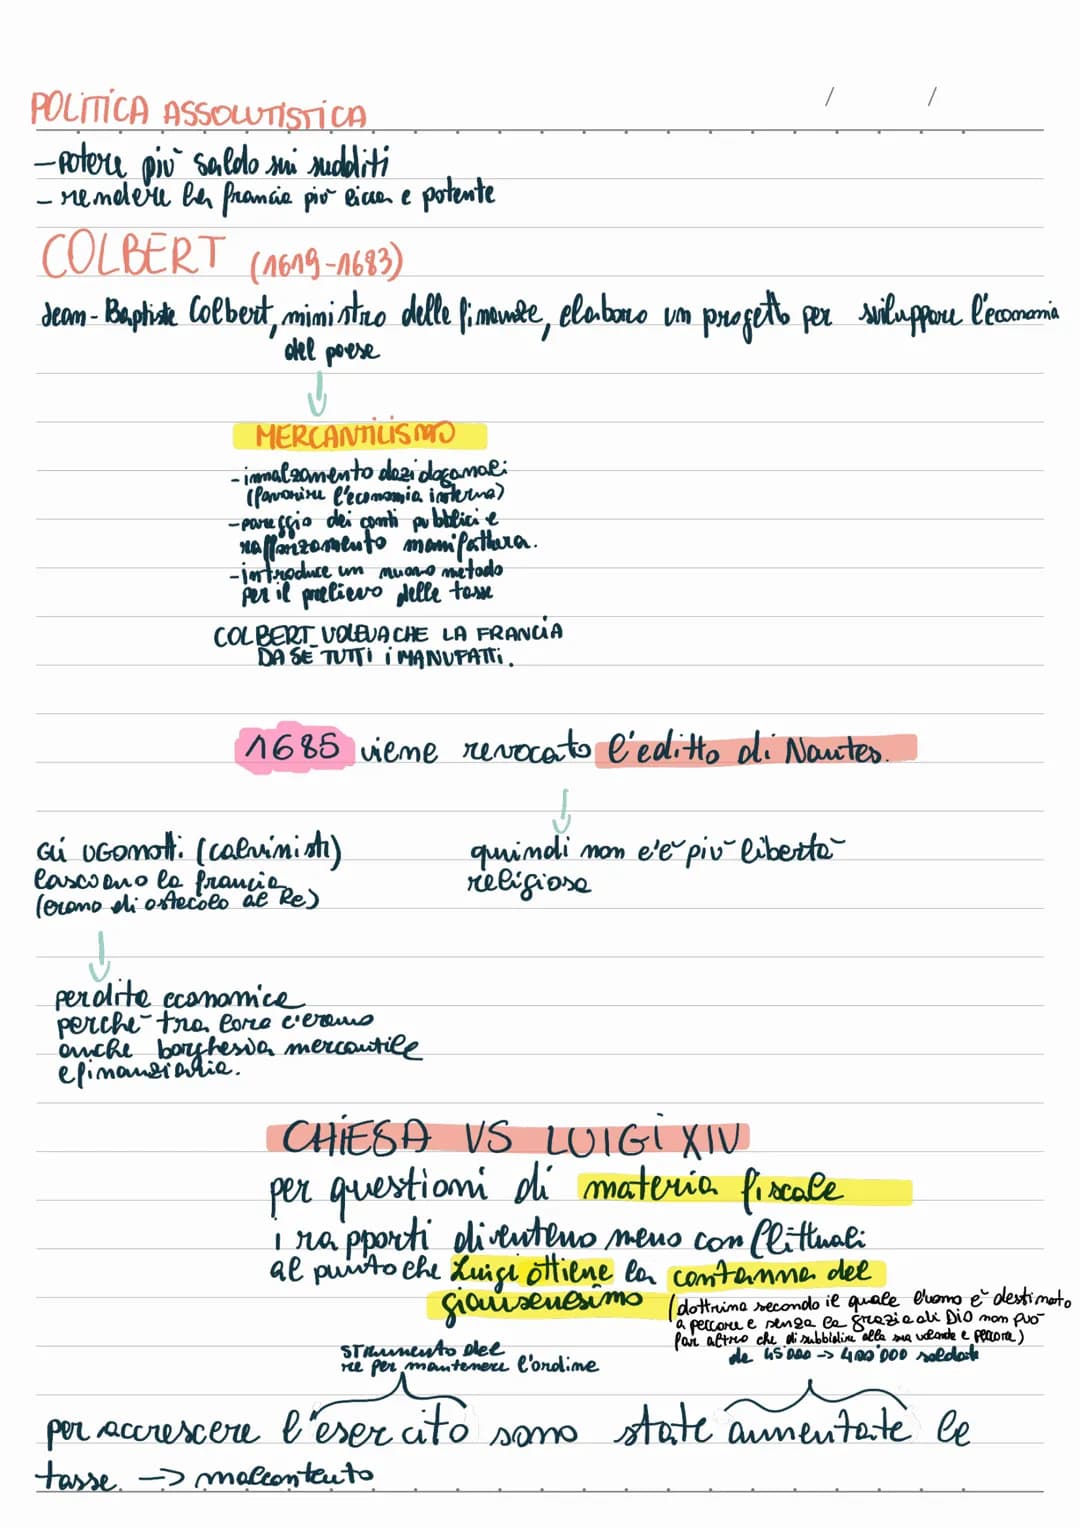 POLITICA ASSOLUTISTICA
/ /
- Potere più saldo sui sudditi
- rendere la francia più ricca e potente
COLBERT (1619-1683)
Jean-Baptiste Colbert, ministro delle finanze, elaboro un progetto per sviluppare l'economia
del paese
MERCANTILISMO
- innalzamento dazi doganali
(favorire l'economia interna)
- pareggio dei conti pubblici e
rafforzamento manifattura.
- introduce un nuovo metodo
per il prelievo delle tasse
COLBERT VOLEVA CHE LA FRANCIA
DA SE TUTTI i MANUFATTI.
1685 viene revocato l'editto di Nantes.
Gli UGonotti (calvinisti)
lasciano la francia
(erano di ostacolo al Re)
quindi non c'è più libertà
religiosa
perdita economica
perchè tra loro c'erano
anche borghesia mercantile
e finanziaria.
CHIESA VS LUIGI XIV
per questioni di materia fiscale
i rapporti diventano meno conflittuali
al punto che Luigi ottiene la contanna del
giansenesimo (dottrina secondo il quale l'uomo è destinato
a peccare e senza la grazia di DIO non può
far altro che di subbidire alla sua volontà e peccare)
STRumento del
re per mantenere l'ordine
da 45'000 -> 400'000 soldati
per accrescere l'esercito sono state aumentate le
tasse. -> malcontento